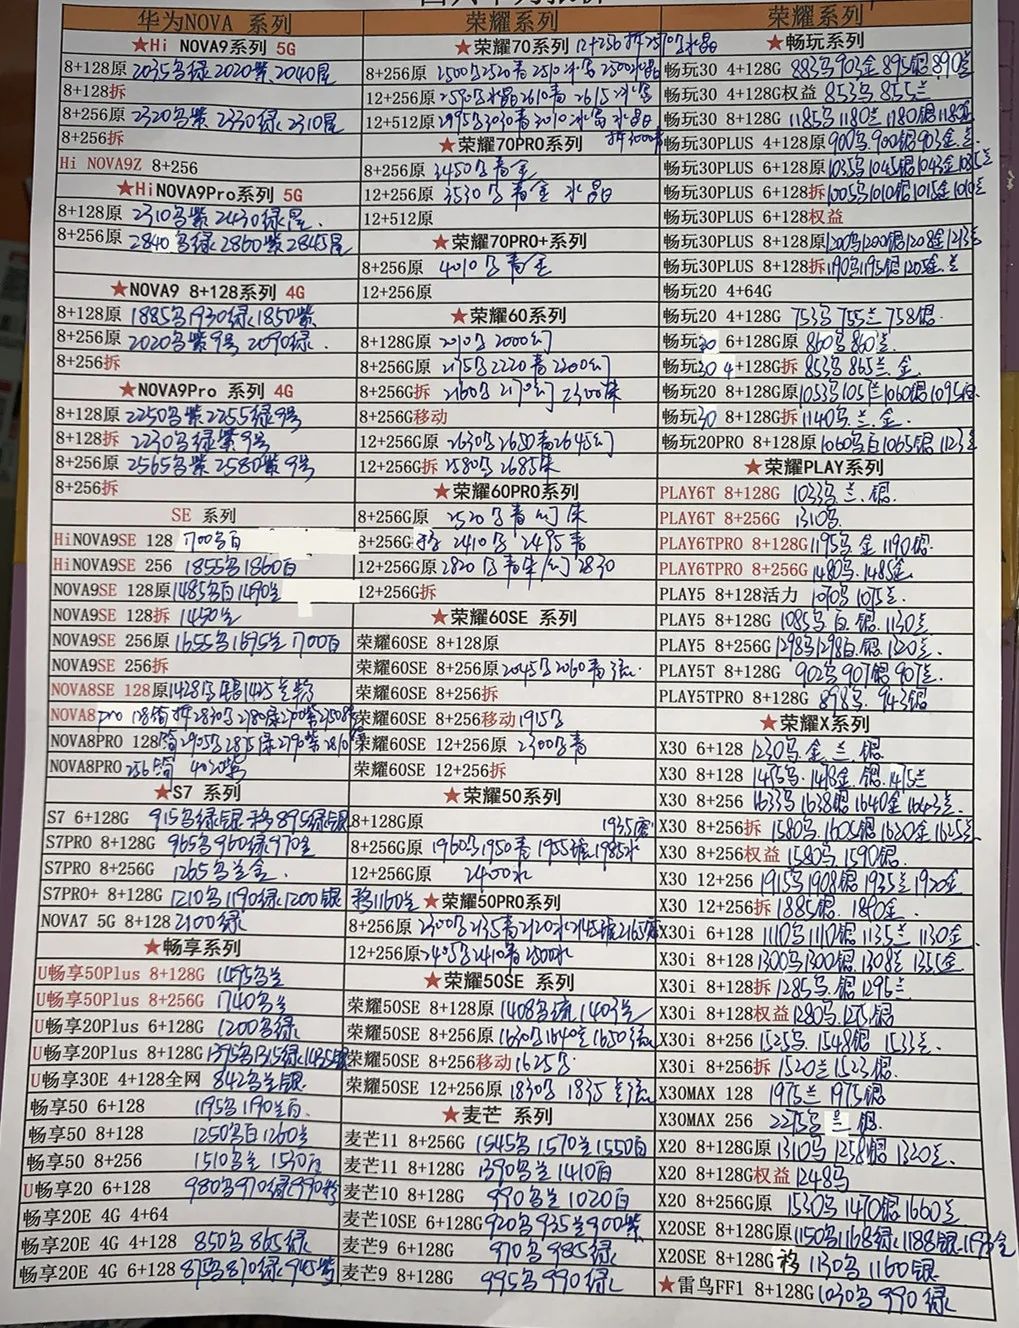 华为NOVA 系列
★Hi NOVA9系列 5G
8+128原 2035乌绿 2020紫 2040星
8+128拆
8+256原 2320乌紫 2330绿 2310星
8+256拆
Hi NOVA9Z 8+256
★HiNOVA9Pro系列 5G
8+128原 2310乌紫 2430绿星
8+256原 2840乌绿 2860紫 2845星
★NOVA9 8+128系列 4G
8+128原 1885乌 1930绿 1850紫
8+256原 2020乌紫9号 2090绿
8+256拆
★NOVA9Pro 系列 4G
8+128原 2250乌紫 2255绿9号
8+128拆 2230乌绿紫9号
8+256原 2565乌紫 2580紫9号
8+256拆
SE 系列
HiNOVA9SE 128 1700乌白
HiNOVA9SE 256 1855乌 1860白
NOVA9SE 128原 1485乌白 1490兰
NOVA9SE 128拆 1450兰
NOVA9SE 256原 1655乌 1675兰 1700白
NOVA9SE 256拆
NOVA8SE 128原 1428乌 1425兰粉
NOVA8 pro 128简拆2830乌 2780绿 2700紫
NOVA8PRO 128简 2905乌 2875绿 2790紫
NOVA8PRO 256简 4020紫
★S7 系列
S7 6+128G 915乌绿银 移895绿银
S7PRO 8+128G 965乌 960绿 970兰
S7PRO 8+256G 1265乌兰金
S7PRO+ 8+128G 1210乌 1190绿 1200银 移1160兰
NOVA7 5G 8+128 2100绿
★畅享系列
U畅享50Plus 8+128G 1495乌兰
U畅享50Plus 8+256G 1740乌兰
U畅享20Plus 6+128G 1200乌绿
U畅享20Plus 8+128G 1395乌 1315绿 1435银
U畅享30E 4+128全网 842乌兰银
畅享50 6+128 1195乌 1190兰白
畅享50 8+128 1250乌白 1260兰
畅享50 8+256 1510乌兰 1530白
U畅享20 6+128 980乌 970绿 990粉
畅享20E 4G 4+64
畅享20E 4G 4+128 850乌 865绿
畅享20E 4G 6+128 875乌 870绿 945紫
荣耀系列
★荣耀70系列 12+256拆2510乌水晶
8+256原 2500乌 2520青 2510冰 2500水晶
12+256原 2590乌水晶 2610青 2615冰
12+512原 2995乌 3030青 3010冰 水晶
★荣耀70PRO系列 拆3000青
8+256原 3450乌青金
12+256原 3530乌青金 水晶
12+512原
★荣耀70PRO+系列
8+256原 4010乌青金
12+256原
★荣耀60系列
8+128G原 2010乌 2000幻
8+256G原 2175乌 2220青 2200幻
8+256G拆 2160乌 2170幻 2300朱
8+256G移动
12+256G原 2630乌 2650青 2645幻
12+256G拆 2580乌 2685朱
★荣耀60PRO系列
8+256G原 2520乌青幻朱
8+256G拆 2410乌 2495青
12+256G原 2820乌青朱 幻2830
12+256G拆
★荣耀60SE 系列
荣耀60SE 8+128原
荣耀60SE 8+256原 2045乌 2060青流
荣耀60SE 8+256拆
荣耀60SE 8+256移动 1915乌
荣耀60SE 12+256原 2300乌青
荣耀60SE 12+256拆
★荣耀50系列
8+128G原
8+256G原 1960乌 1950青 1955 1985水
12+256G原 2400水
★荣耀50PRO系列
8+256原 2300乌 2235青 2120水 2145 2165
12+256原 2405乌 2410青 2500水
★荣耀50SE 系列
荣耀50SE 8+128原 1408乌流 1403兰
荣耀50SE 8+256原 1630乌 1640兰 1650流
荣耀50SE 8+256移动 1625乌
荣耀50SE 12+256原 1830乌 1835兰流
★麦芒 系列
麦芒11 8+256G 1545乌 1570兰 1550白
麦芒11 8+128G 1390乌兰 1410白
麦芒10 8+128G 990乌兰 1020白
麦芒10SE 6+128G 920乌 935兰 900紫
麦芒9 6+128G 970乌 985绿
麦芒9 8+128G 995乌 990绿
荣耀系列
★畅玩系列
畅玩30 4+128G 883乌 903金 895银 890兰
畅玩30 4+128G权益 853乌 855兰
畅玩30 8+128G 1185乌 1180兰 1180银
畅玩30PLUS 4+128原 900乌 900银 903金 兰
畅玩30PLUS 6+128原 1035乌 1045银 1043金 兰
畅玩30PLUS 6+128拆 1005乌 1010银 1015金 1010兰
畅玩30PLUS 6+128权益
畅玩30PLUS 8+128原 1200乌 1200银 1208金 1213兰
畅玩30PLUS 8+128拆 1190乌 1195银 1205金兰
畅玩20 4+64G
畅玩20 4+128G 753乌 755兰 758银
畅玩30 6+128G原 860乌 860兰
畅玩30 4+128G拆 855乌 865兰 金
畅玩20 8+128G原 1053乌 105兰 1060银
畅玩30 8+128G拆 1140乌 兰 金
畅玩20PRO 8+128原 1060乌白 1065银 1123兰
★荣耀PLAY系列
PLAY6T 8+128G 1033乌 兰 银
PLAY6T 8+256G 1310乌
PLAY6TPRO 8+128G 1195乌 金 1190银
PLAY6TPRO 8+256G 1480乌 1485金
PLAY5 8+128活力 1070乌 1075兰
PLAY5 8+128G 1085乌 白 银 1130兰
PLAY5 8+256G 1298乌 1298白 银 1320兰
PLAY5T 8+128G 902乌 907银 907兰
PLAY5TPRO 8+128G 898乌 943银
★荣耀X系列
X30 6+128 1230乌 金 兰 银
X30 8+128 1475乌 1478金 银 1475兰
X30 8+256 1633乌 1638银 1640金 1643兰
X30 8+256拆 1580乌 1605银 1620金 1625兰
X30 8+256权益 1580乌 1590银
X30 12+256 1915乌 1908银 1935兰 1920金
X30 12+256拆 1885银 1890金
X30i 6+128 1110乌 1110银 1135兰 1130金
X30i 8+128 1300乌 1300银 1308兰 1335金
X30i 8+128拆 1285乌 银 1296兰
X30i 8+128权益 1280乌 1275银
X30i 8+256 1525乌 1548银 1533兰
X30i 8+256拆 1520兰 1523银
X30MAX 128 1975兰 1975银
X30MAX 256 2275乌 兰 银
X20 8+128G原 1310乌 1258银 1320兰
X20 8+128G权益 1248乌
X20 8+256G原 1530乌 1470银 1660兰
X20SE 8+128G原 1150乌 1168绿 1188银 1193金
X20SE 8+128G 移 1130乌 1160银
★雷鸟FF1 8+128G 1030乌 990绿